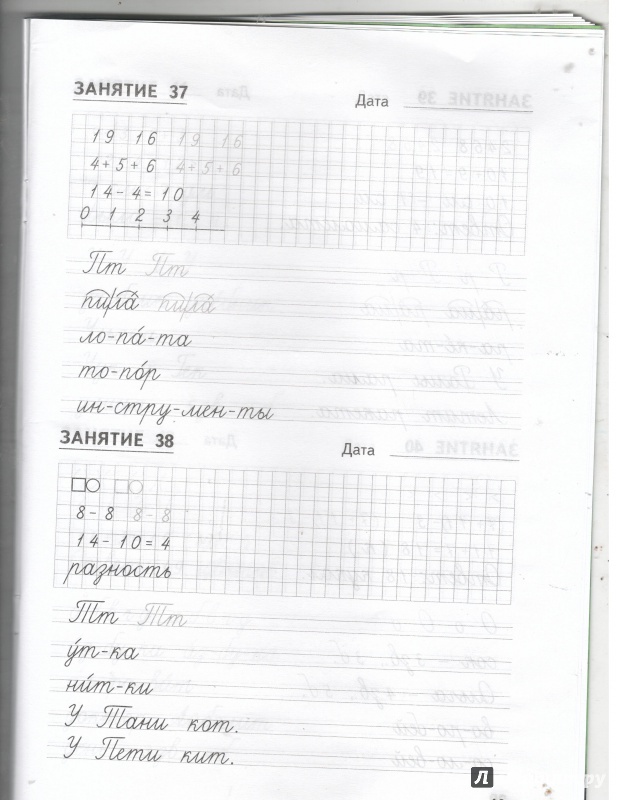 ЗАНЯТИЕ 37 Дата
19 16 19 16
4+5+6 4+5+6
14-4=10
0 1 2 3 4
Пп Пп
пи/ла́ пи/ла́
ло-па́-та
то-по́р
ин-стру-мен-ты
ЗАНЯТИЕ 38 Дата
8-8 8-8
14-10=4
разность
Тт Тт
у́т-ка
ни́т-ки
У Тани кот.
У Пети кит.